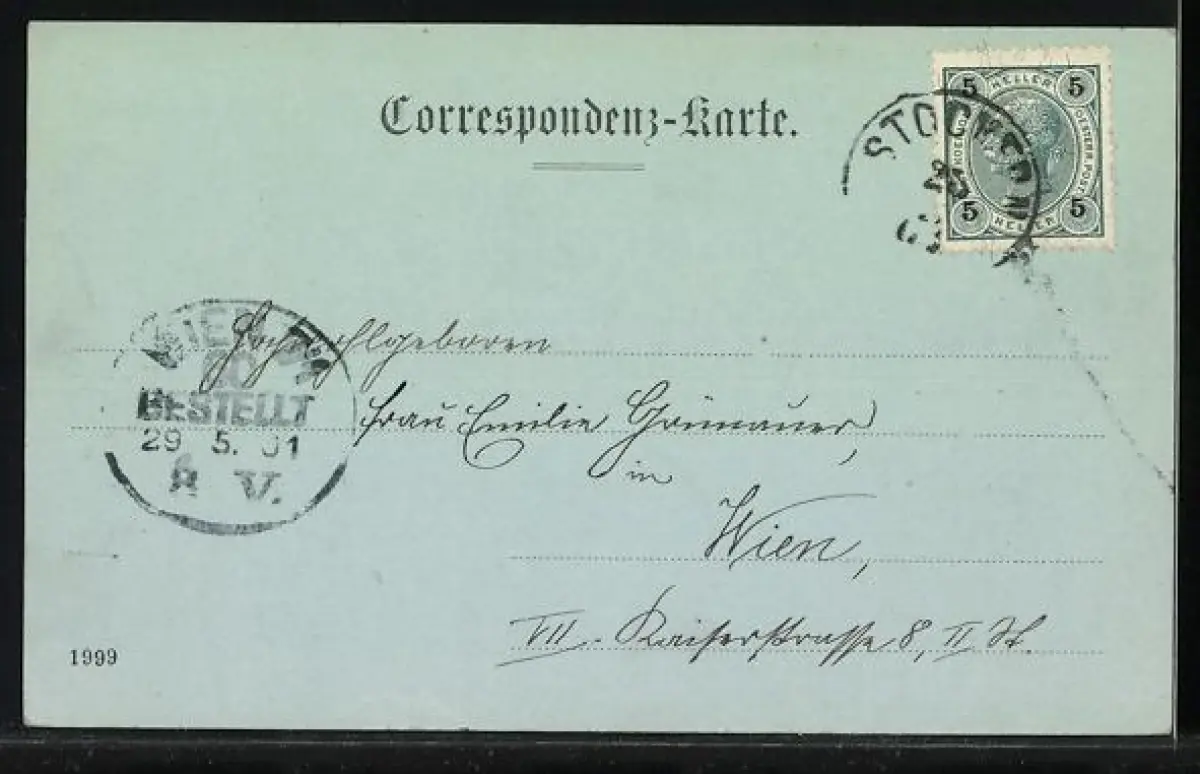 Correspondenz-Karte.
5 HELLER 5
OESTERR. POST
5 HELLER 5
WIEN
BESTELLT
29 5. 01
8 V.
Hochwohlgeboren
Frau Emilie Grünauer,
in
Wien,
VII. Kaiserstrasse 8, II St.
1999